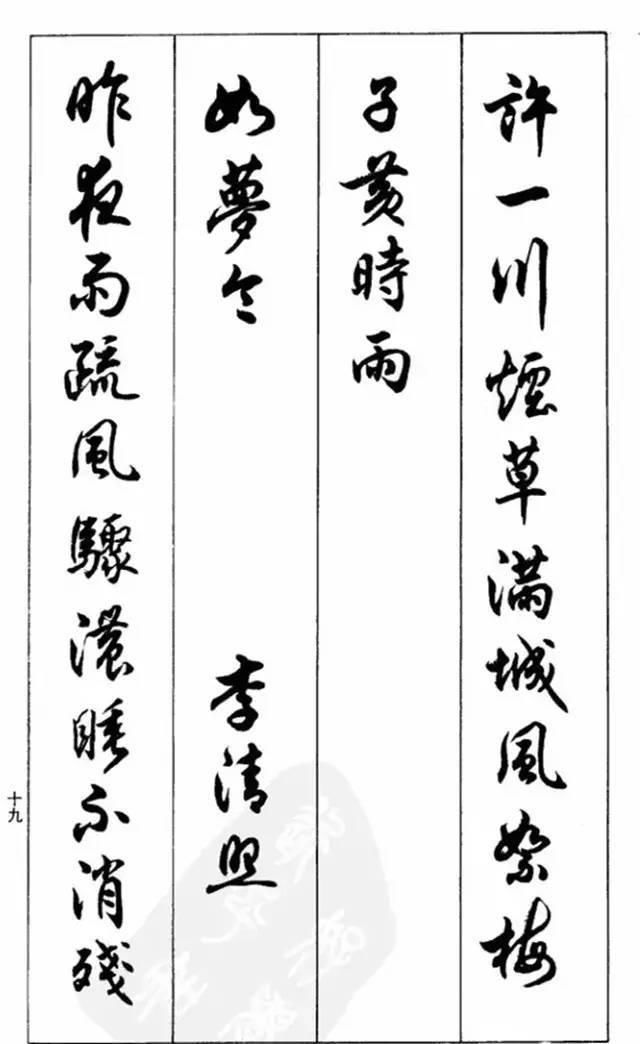 許一川煙草滿城風絮梅
子黄時雨
如夢令 李清照
昨夜雨疏風驟濃睡不消殘
十九